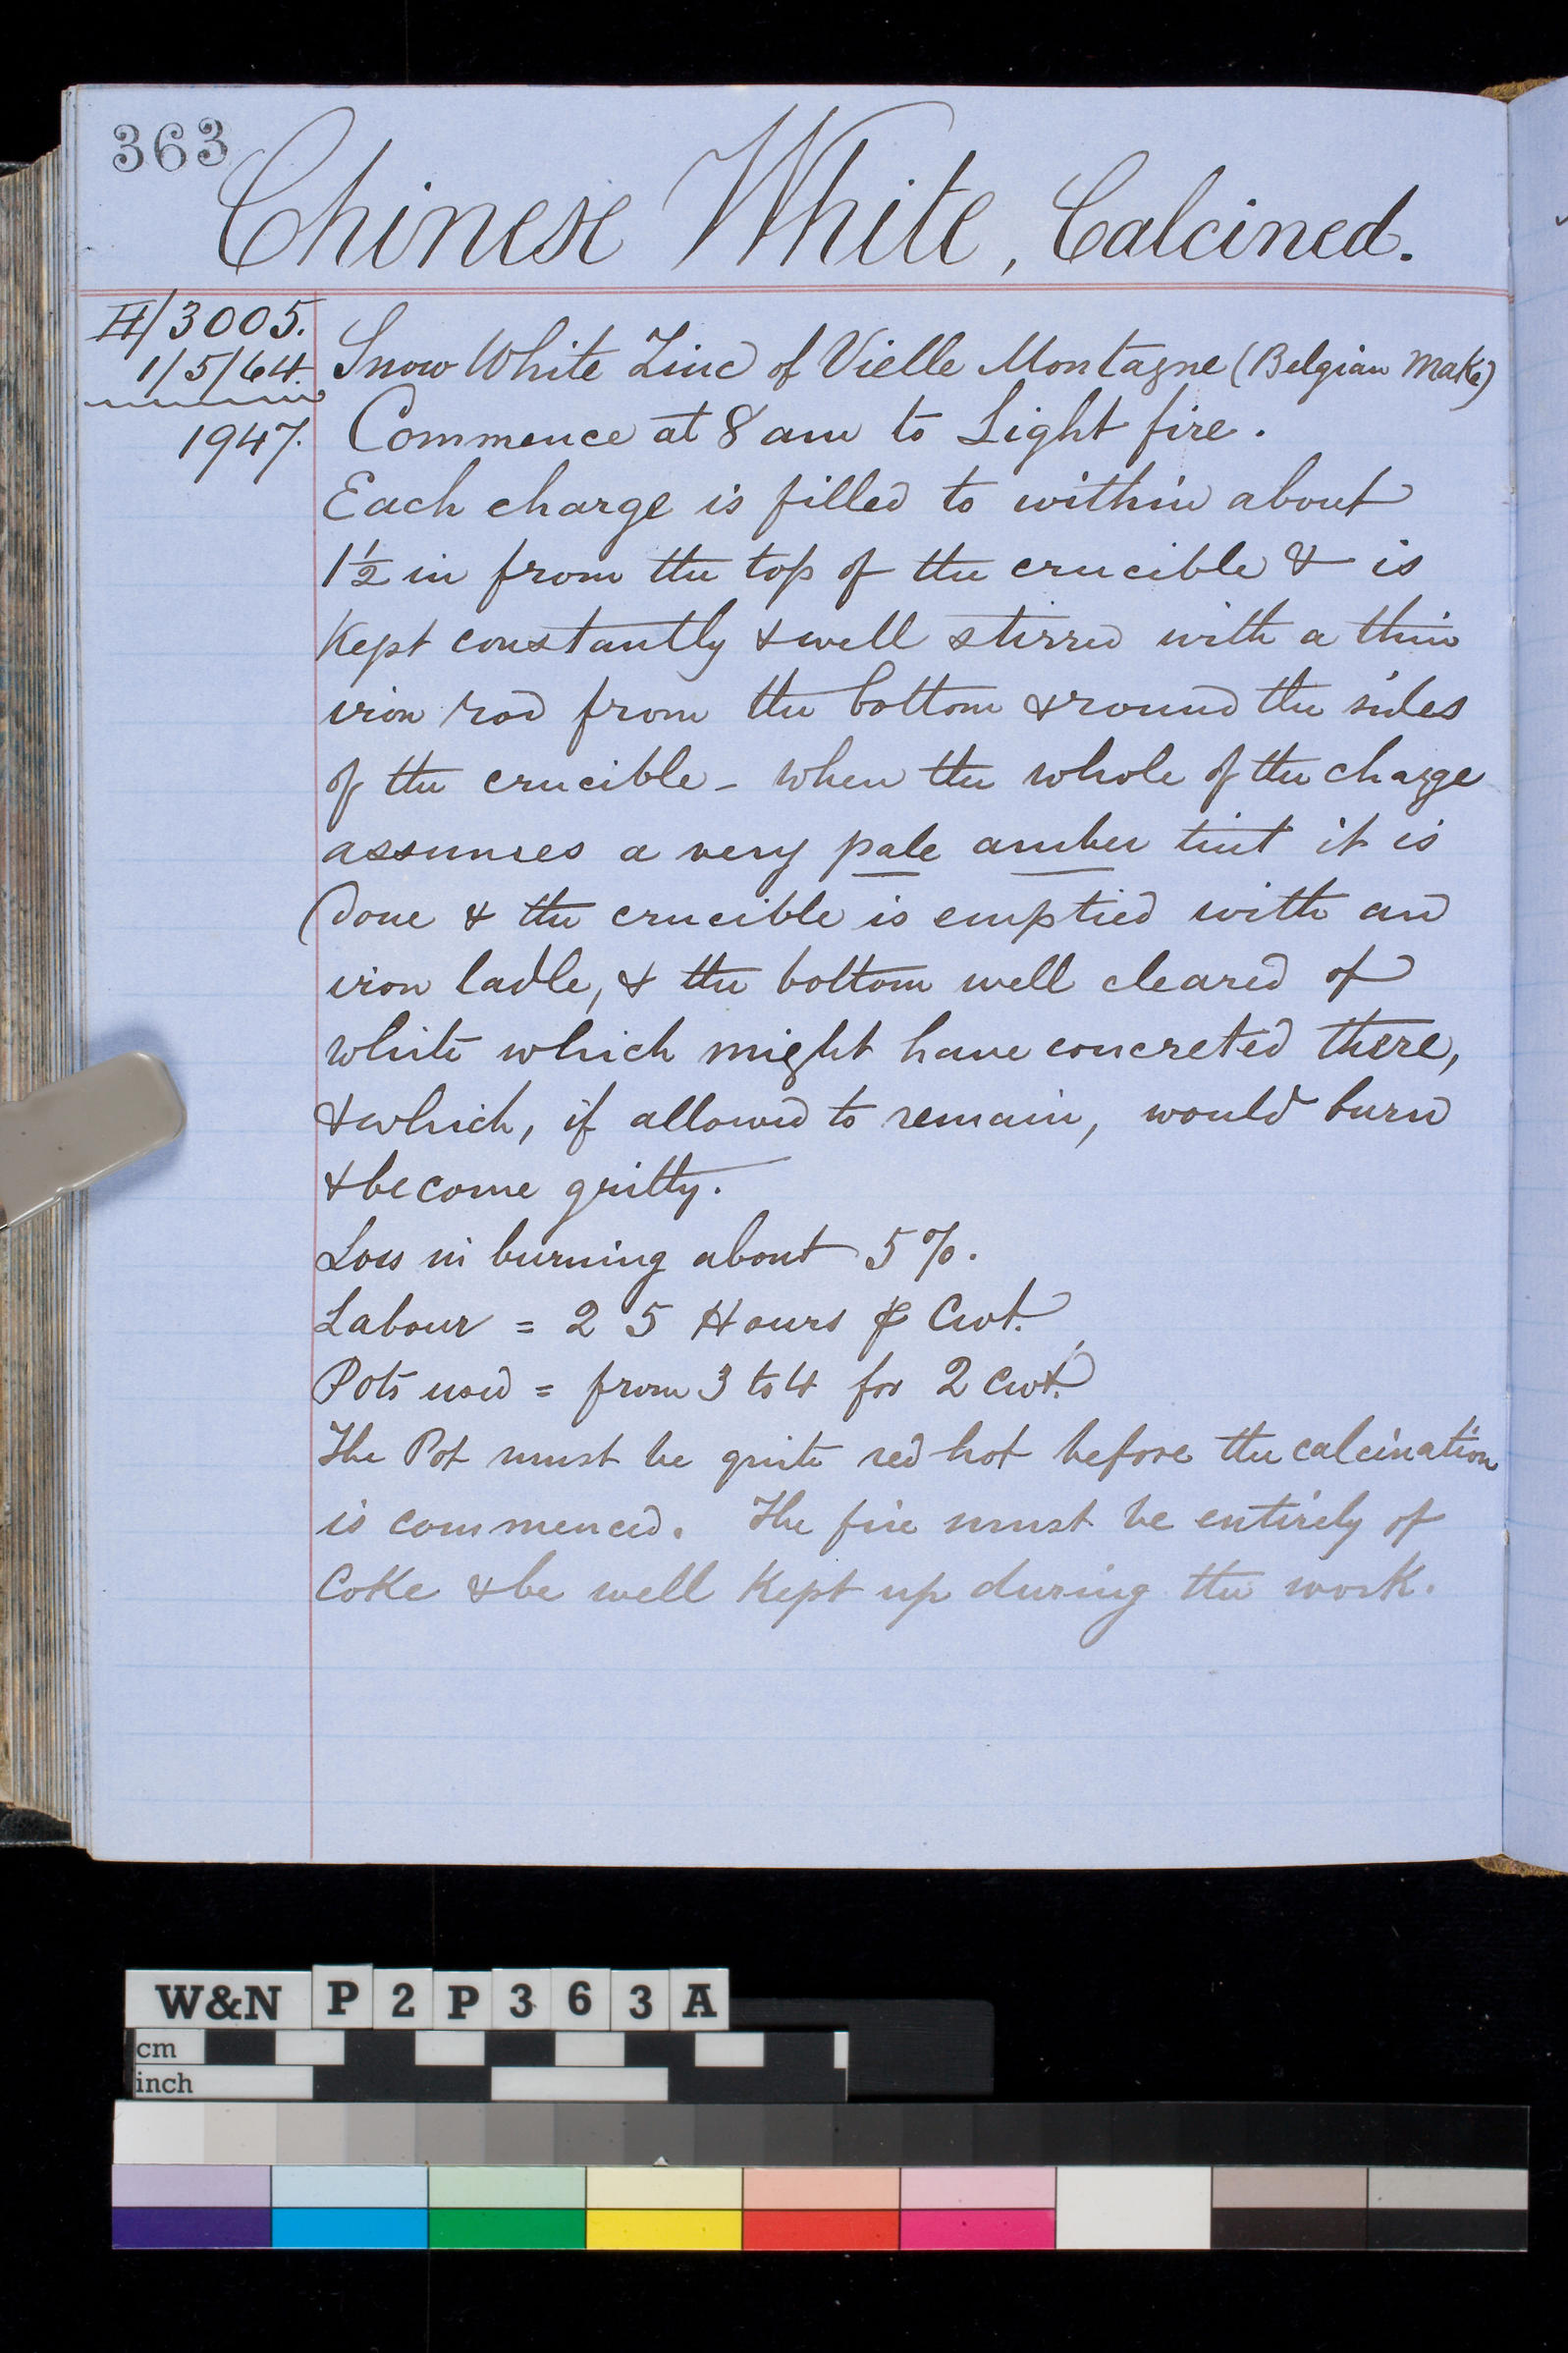 363
Chinese White, Calcined.
II/3005.
1/5/64.
1947.
Snow White Zinc of Vielle Montagne (Belgian Make)
Commence at 8 am to Light fire.
Each charge is filled to within about
1½ in from the top of the crucible & is
Kept constantly & well stirred with a thin
iron rod from the bottom & round the sides
of the crucible - when the whole of the charge
assumes a very pale amber tint it is
done & the crucible is emptied with an
iron ladle, & the bottom well cleared of
white which might have concreted there,
& which, if allowed to remain, would burn
& become gritty.
Loss in burning about 5%.
Labour = 25 Hours ⅌ Cwt.
Pots used = from 3 to 4 for 2 cwt.
The Pot must be quite red hot before the calcination
is commenced. The fire must be entirely of
Coke & be well Kept up during the work.
W&N P2P363A
cm
inch